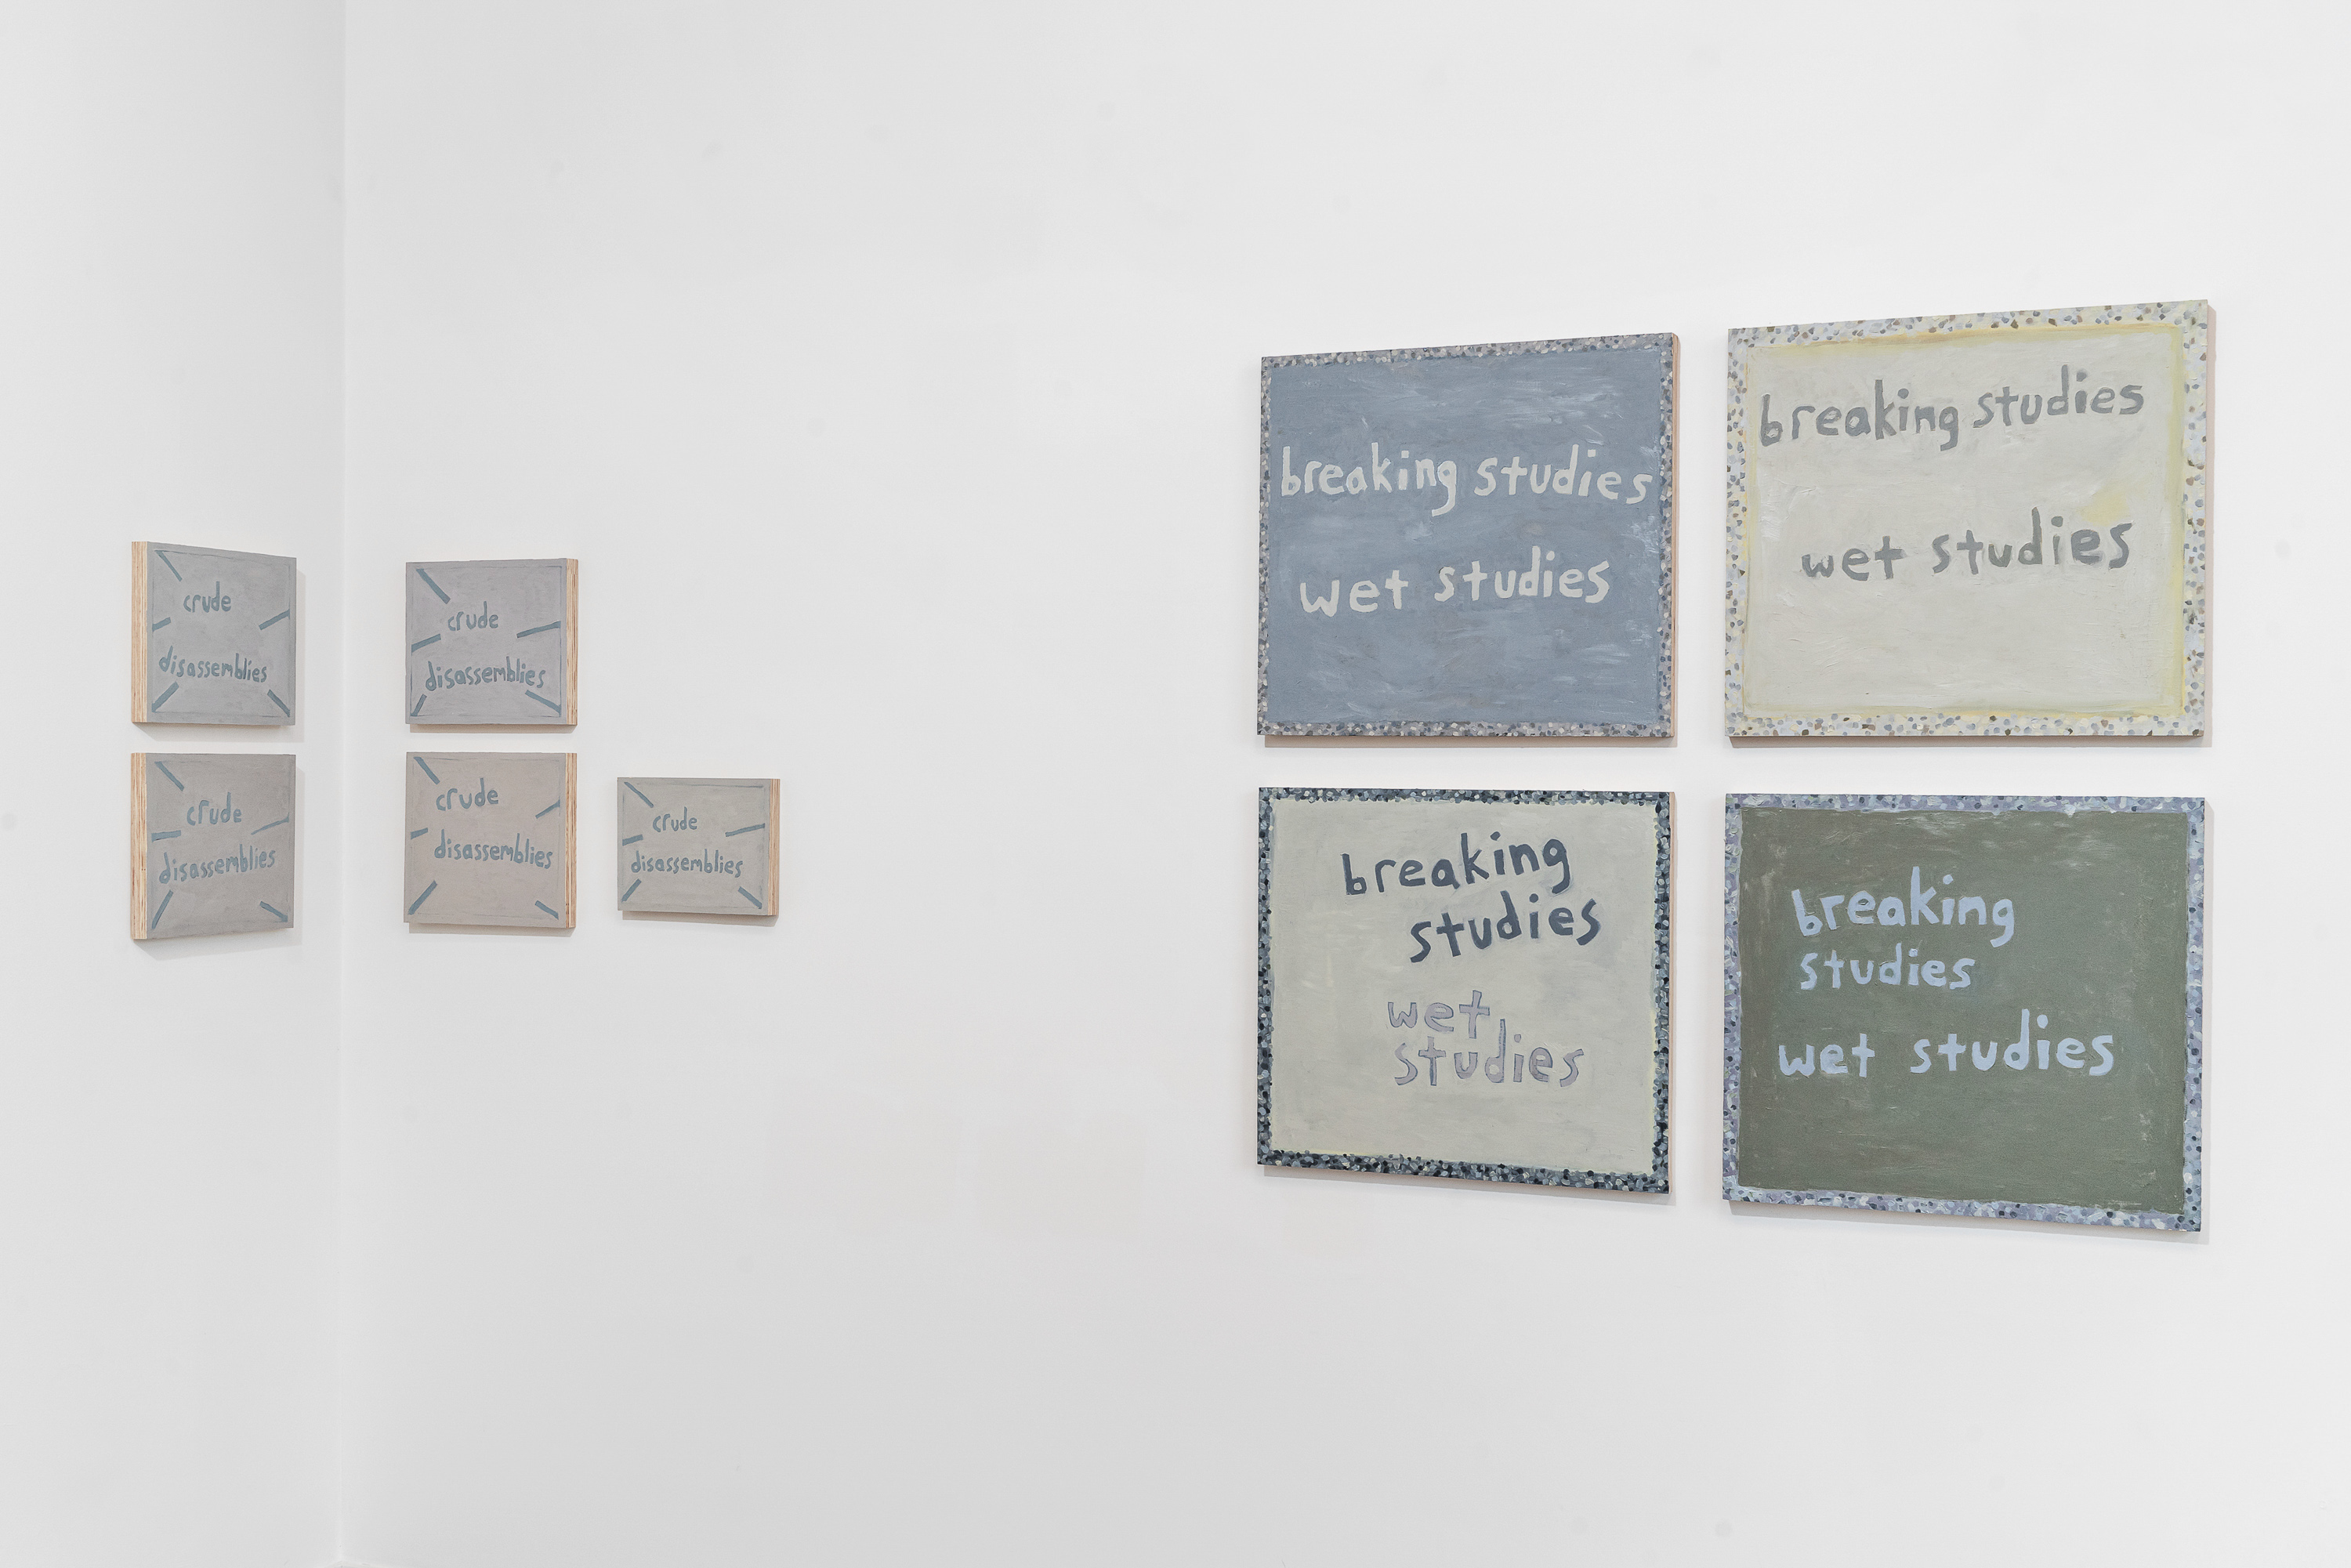 crude
disassemblies
crude
disassemblies
crude
disassemblies
crude
disassemblies
crude
disassemblies
breaking studies
wet studies
breaking studies
wet studies
breaking
studies
wet
studies
breaking
studies
wet studies